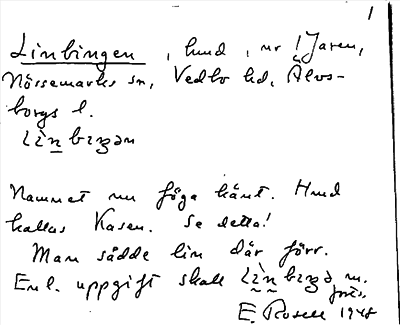 1
Linbingen, lund, nr 1 Jaren,
Nössemarks sn, Vedbo hd, Älvs-
borgs l.
Namnet nu föga känt. Hund
kallas Kasen. Se detta!
Man sådde lin där förr.
Enl. uppgift skall
E. Rosell 1948